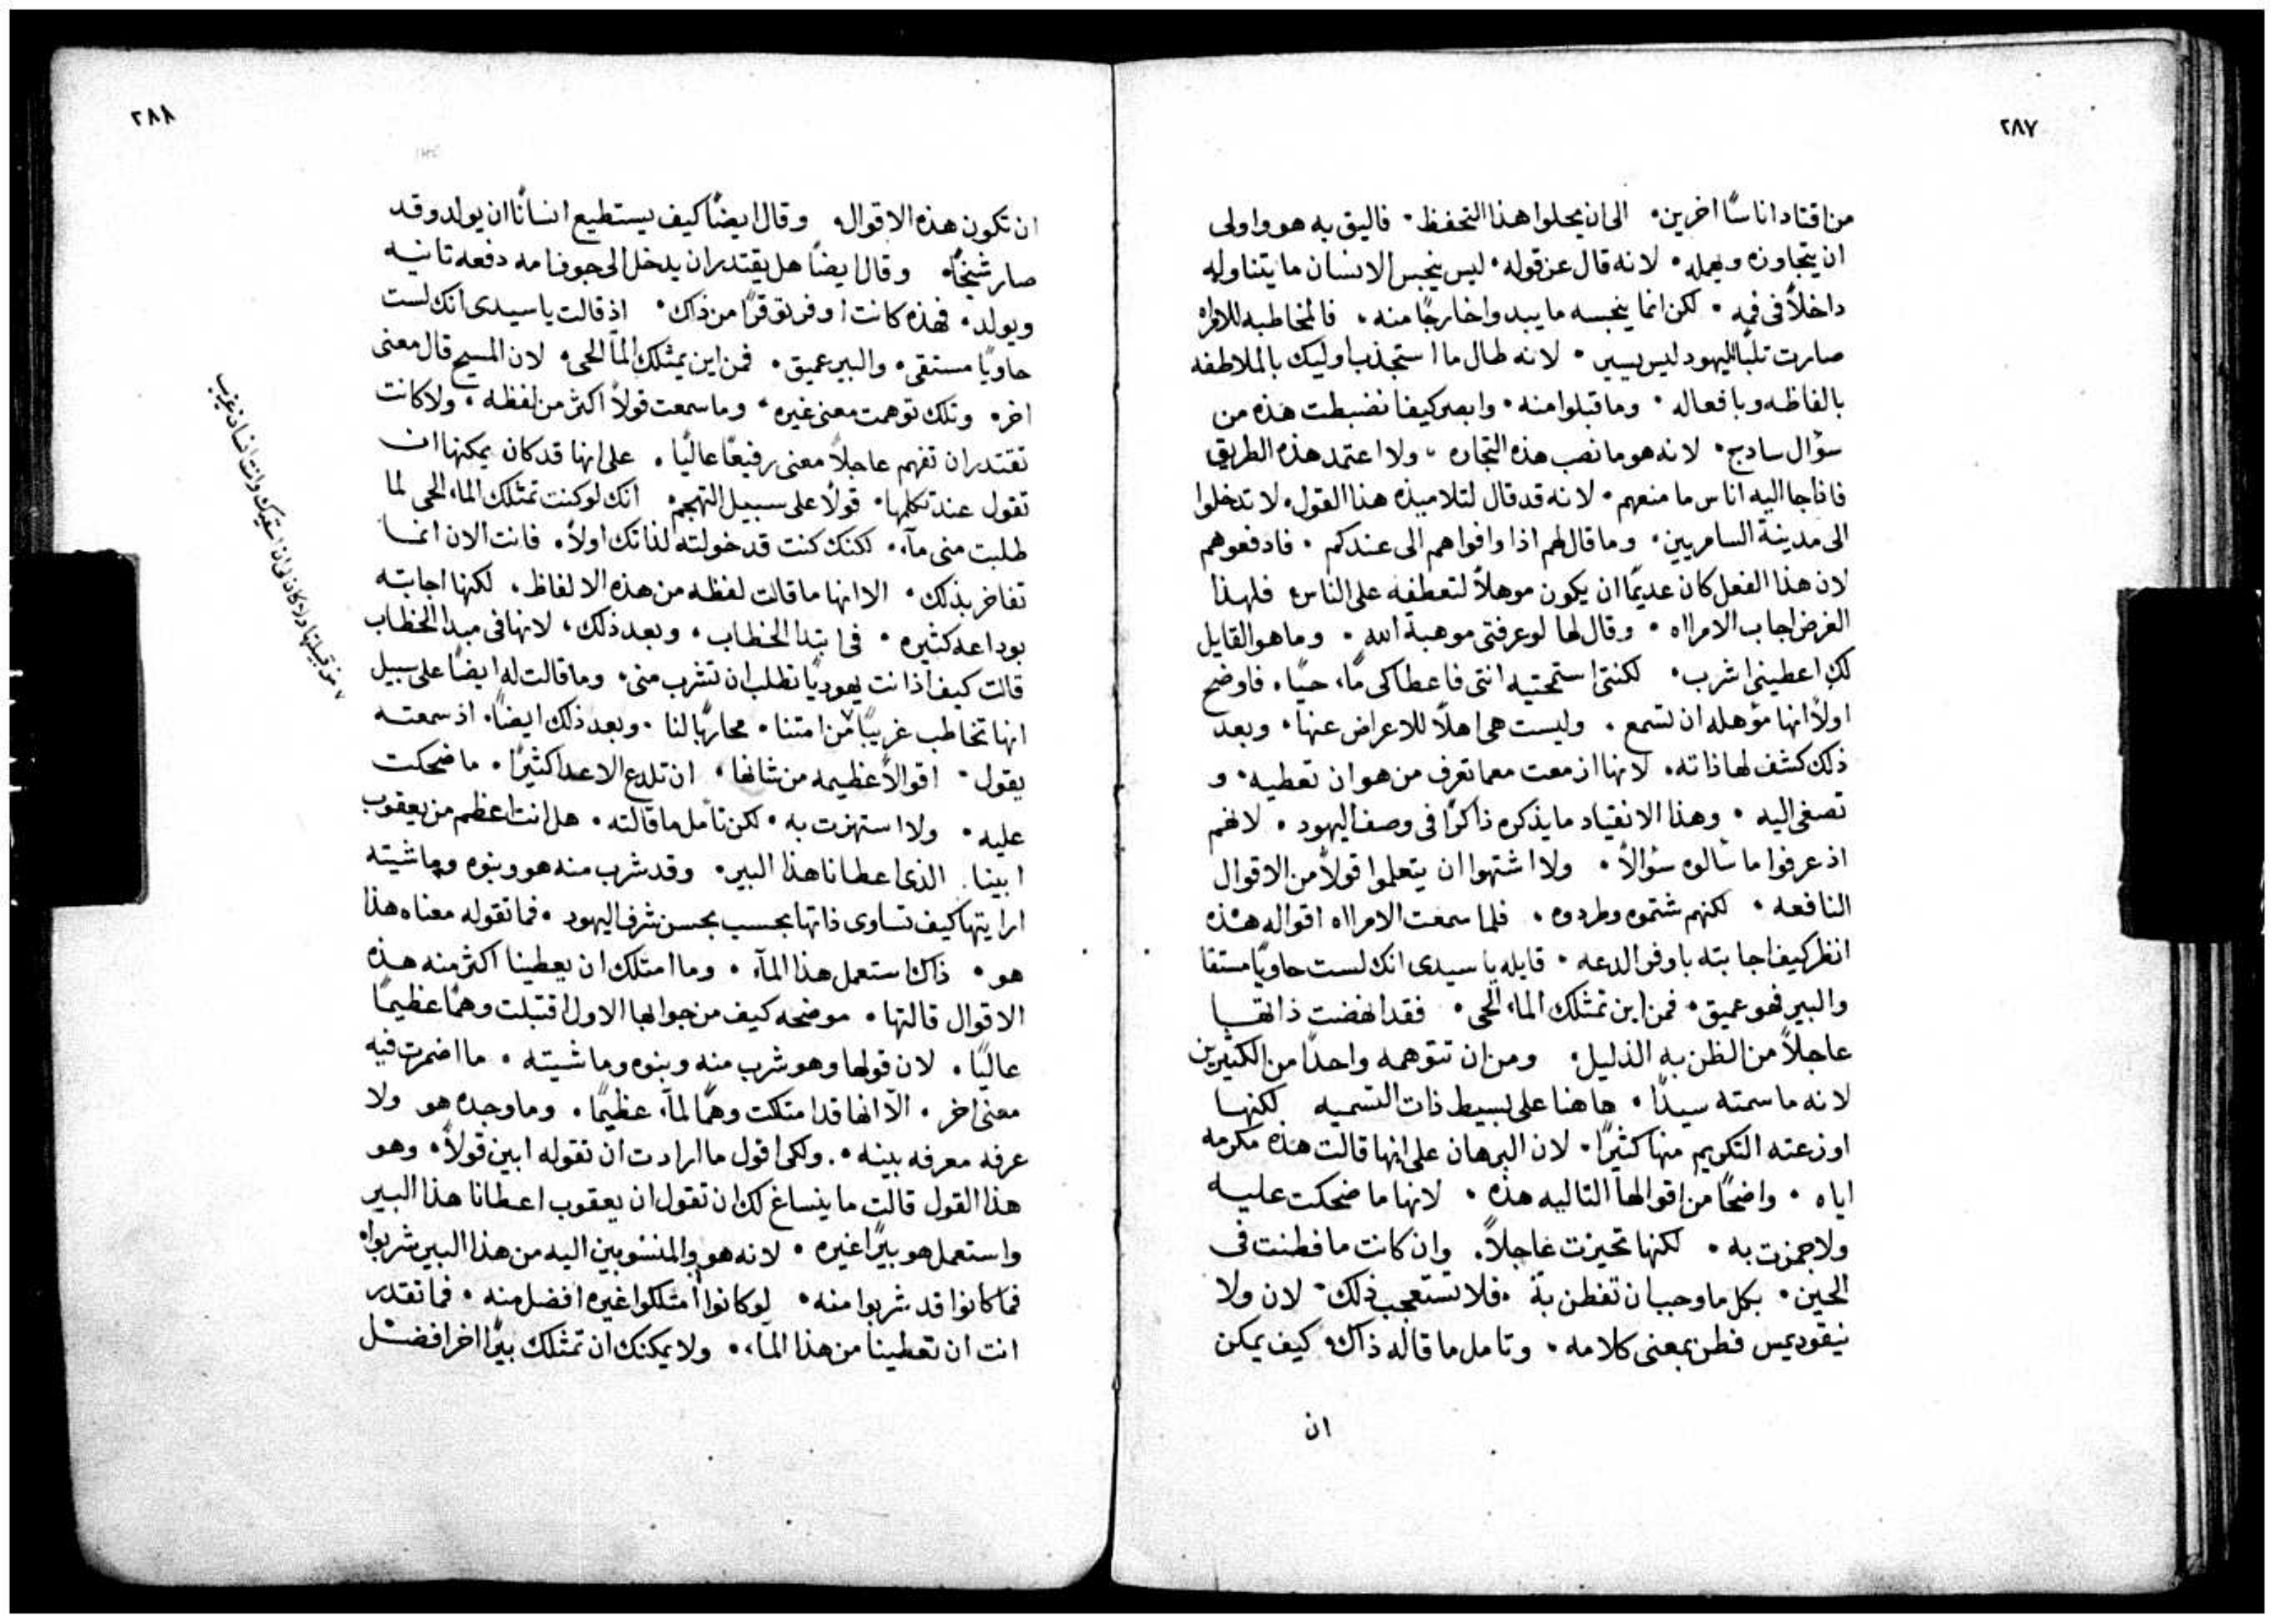 ٢٨٧
من اقتاد اناسًا اخرين٠ الى ان يحلوا هذا التحفظ٠ فاليق به هو واولى
ان يتجاوزه ويهمله٠ لانه قال عن قوله٠ ليس ينجس الانسان ما يتناوله
داخلاً فى فمه٠ لكن انما ينجسه ما يبدوا خارجًا منه٠ فالمخاطبه للامراه
صارت تلبًا لليهود ليس يسير٠ لانه طال ما استجذب اوليك بالملاطفه
بالفاظه وبافعاله٠ وما قبلوا منه٠ وابصر كيف انضبطت هذه من
سؤال سادج٠ لانه هو ما نصب هذه التجاره٠ ولا اعتمد هذه الطريق
فاذا جا اليه اناس ما منعهم٠ لانه قد قال لتلاميذه هذا القول٠ لا تدخلوا
الى مدينة السامريين٠ وما قال لهم اذا وافواهم الى عندكم٠ فادفعوهم
لان هذا الفعل كان عديمًا ان يكون موهلاً لتعطفه على الناس٠ فلهذا
الغرض اجاب الامراه٠ وقال لها لو عرفتى موهبة الله٠ وما هو القايل
لك اعطينى اشرب٠ لكنتى استمحتيه انتى فاعطاكى مآء حيًا٠ فاوضح
اولاً انها مؤهله ان تسمع٠ وليست هى اهلاً للاعراض عنها٠ وبعد
ذلك كشف لها ذاته٠ لانها ازمعت معما تعرف من هو ان تعطيه٠ و
تصغى اليه٠ وهذا الانقياد ما يذكره ذاكرًا فى وصف اليهود٠ لانهم
اذ عرفوا ما سألوه سؤالاً٠ ولا اشتهوا ان يتعلموا قولاً من الاقوال
النافعه٠ لكنهم شتموه وطردوه٠ فلما سمعت الامراه اقواله هذه
انظر كيف اجابته باوفر الدعه٠ قايله يا سيدى انك لست حاويًا مستقا
والبير فهو عميق٠ فمن اين تمتلك الماء الحى٠ فقد انهضت ذاتها
عاجلاً من الظن به الذليل٠ ومن ان تتوهمه واحدًا من الكثيرين
لانه ما سمته سيدًا٠ هاهنا على بسيط ذات التسميه لكنها
اوزعته التكريم منها كثيرًا٠ لان البرهان على انها قالت هذه مكرمه
اياه٠ واضحًا من اقوالها التاليه هذه٠ لانها ما ضحكت عليه
ولا جمزت به٠ لكنها تحيزت عاجلاً٠ وان كانت ما فطنت فى
الحين٠ بكل ما وجب ان تفطن به٠ فلا تستعجب ذلك٠ لان ولا
نيقوديمس فطن بمعنى كلامه٠ وتامل ما قاله ذاك٠ كيف يمكن
ان
٢٨٨
ان تكون هذه الاقوال٠ وقال ايضًا كيف يستطيع انسانًا ان يولد وقد
صار شيخًا٠ وقال ايضًا هل يقتدر ان يدخل الى جوف امه دفعه ثانيه
ويولد٠ فهذه كانت اوفر توقرًا من ذاك٠ اذ قالت يا سيدى انك لست
حاويًا مستقى٠ والبير عميق٠ فمن اين يمتلك المآ الحى٠ لان المسيح قال معنى
اخر٠ وتلك توهمت معنى غيره٠ وما سمعت قولاً اكثر من لفظه٠ ولا كانت
تقتدر ان تفهم عاجلاً معنى رفيعًا عاليًا٠ على انها قد كان يمكنها ان
تقول عند تكلمها٠ قولاً على سبيل التهجم٠ انك لو كنت تمتلك الماء الحى لما
طلبت منى مآء٠ لكنك كنت قد خولته لذاتك اولاً٠ فانت الان انما
تفاخر بذلك٠ الا انها ما قالت لفظه من هذه الالفاظ٠ لكنها اجابته
بوداعه كثيره٠ فى ابتدا الخطاب٠ وبعد ذلك٠ لانها فى مبدا الخطاب
قالت كيف اذ انت يهوديًا تطلب ان تشرب منى٠ وما قالت له ايضًا على سبيل
انها تخاطب غريبًا من امتنا٠ محاربًا لنا٠ وبعد ذلك ايضًا٠ اذ سمعته
يقول٠ اقوالاً عظيمه من شانها٠ ان تلدع الاعدا كثيرًا٠ ما ضحكت
عليه٠ ولا استهزت به٠ لكن تأمل ما قالته٠ هل انت اعظم من يعقوب
ابينا٠ الذى اعطانا هذا البير٠ وقد شرب منه هو وبنوه وماشيته
ارايتها كيف تساوى ذاتها بحسب بجسن شرف اليهود٠ فما تقوله معناه هذا
هو٠ ذاك استعمل هذا المآء٠ وما امتلك ان يعطينا اكثر منه هذه
الاقوال قالتها٠ موضحه كيف من جوابها الاول اقتبلت وهمًا عظيمًا
عاليًا٠ لان قولها وهو شرب منه وبنوه وماشيته٠ ما اضمرت فيه
معنى اخر٠ الآ انها قد امتلكت وهمًا لمآء عظيمًا٠ وما وجده هو ولا
عرفه معرفه بينه٠ ولكى اقول ما ارادت ان تقوله ابين قولاً٠ وهو
هذا القول قالت ما ينساغ لك ان تقول ان يعقوب اعطانا هذا البير
واستعمل هو بيرًا غيره٠ لانه هو والمنسوبين اليه من هذا البير شربوا٠
فما كانوا قد شربوا منه٠ لو كانوا أمتلكوا غيره افضل منه٠ فما تقدر
انت ان تعطينا من هذا المآء٠ ولا يمكنك ان تمتلك بيرًا اخرا فضل